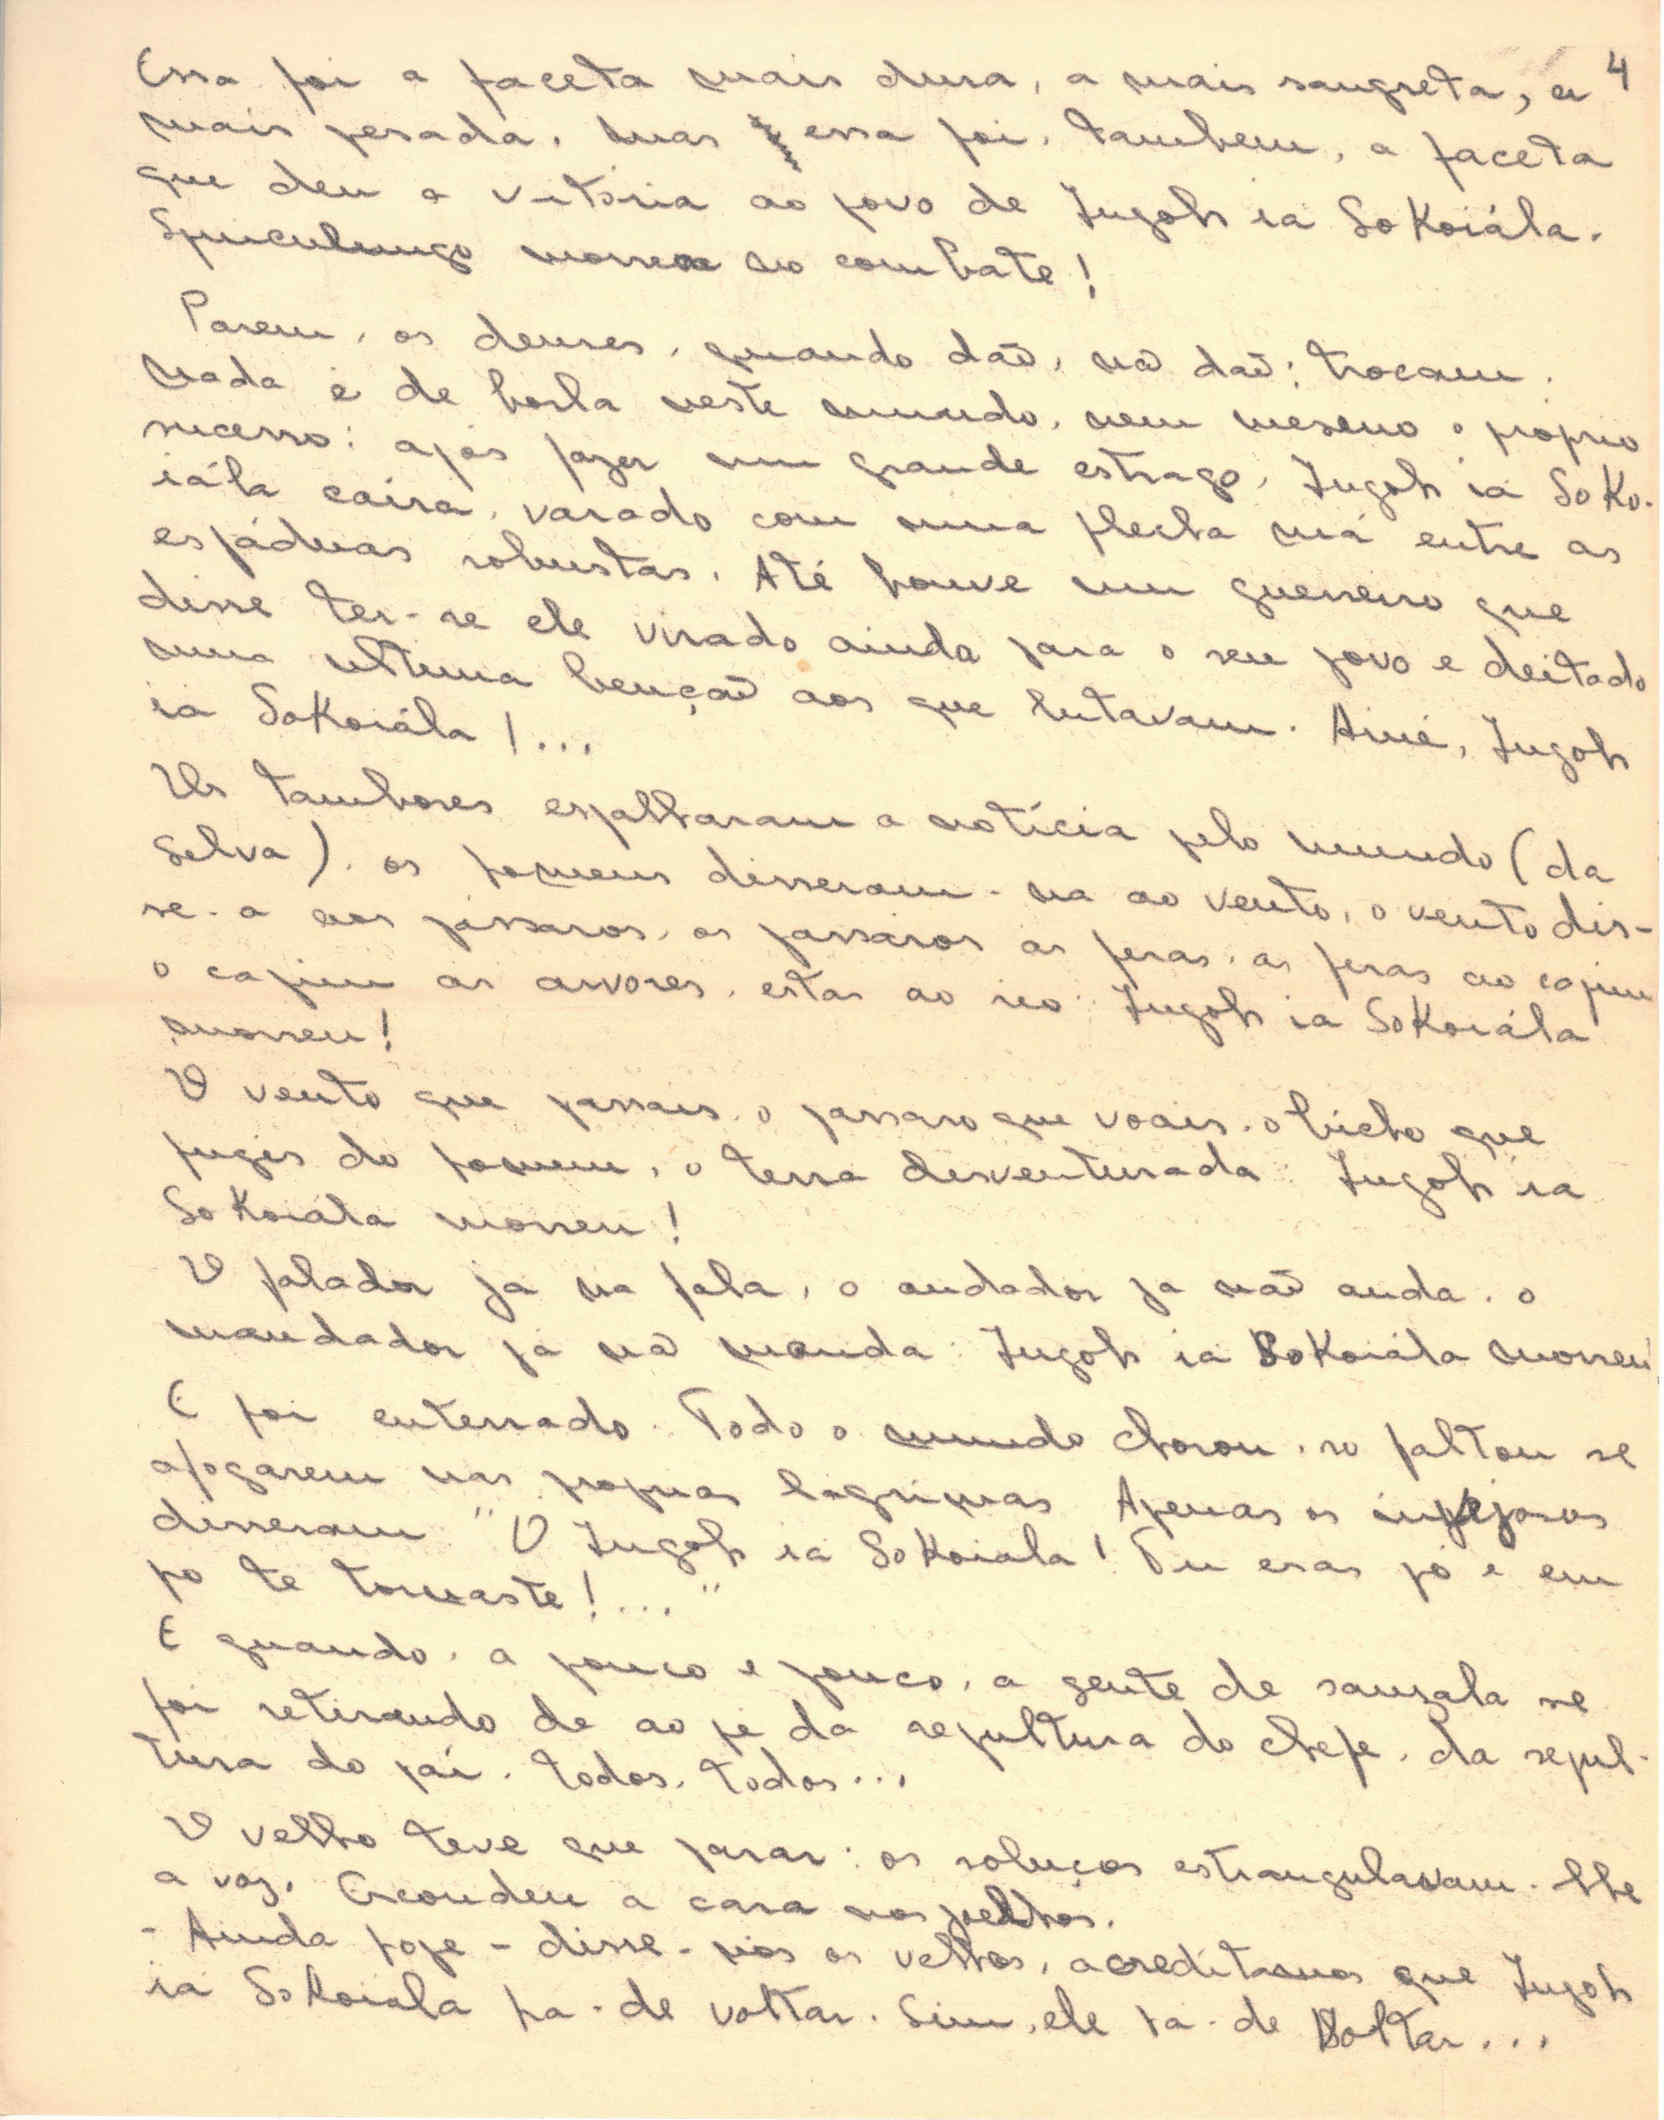 4
Essa foi a faceta mais dura, a mais sangreta, a
mais pesada, mas essa foi, tambem, a faceta
que deu a vitória ao povo de Ingoh ia Sokoiála.
Spuculungo morreu no combate!
Parem, os deuses, quando daõ, nã daõ: trocam.
Nada é de borla neste mundo, nem mesmo o próprio
sucesso: após fazer um grande estrago, Ingoh ia Soko-
iála caira, varado com uma flecha má entre as
espáduas robustas. Até houve um guerreiro que
disse ter-se ele virado ainda para o seu povo e deitado
uma ultima bençaõ aos que lutavam. Aiué, Ingoh
ia Sokoiála!...
Us tambores espalharam a notícia pelo mundo (da
selva), os homens disseram-na ao vento, o vento dis-
se-a aos pássaros, os passaros as feras, as feras ao capim
o capim as arvores, estas ao rio: Ingoh ia Sokoiála
morreu!
O vento que passais, o passaro que voais, o bicho que
fugis do homem, o terra desventurada: Ingoh ia
Sokoiála morreu!
O falador ja na fala, o andador ja naõ anda, o
mandador já nã manda: Ingoh ia Sokoiála morreu!
E foi enterrado. Todo o mundo chorou, so faltou se
afogarem nas proprias lagrimas. Apenas os invejosos
disseram "O Ingoh ia Sokoiala! Tu eras pó e em
po te tornaste!..."
E quando, a pouco e pouco, a gente de sanzala se
foi retirando de ao pé da sepultura do chefe, da sepul-
tura do pai, todos, todos...
O velho teve que parar: os soluços estrangulavam-lhe
a voz. Escondeu a cara nos joelhos.
- Ainda hoje - disse - nós os velhos, acreditamos que Ingoh
ia Sokoiala ha-de voltar. Sim, ele ha-de voltar...